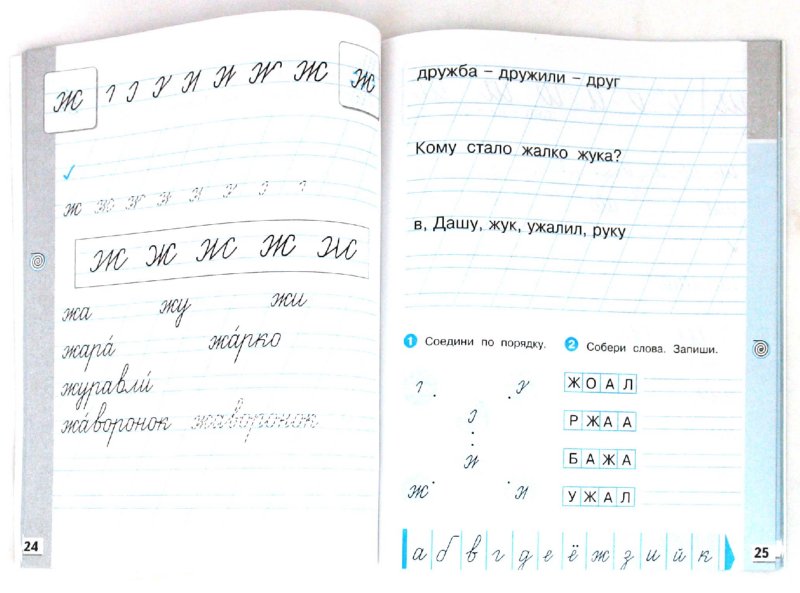 ж ж ж
ж
ж ж ж ж ж
жа жу жи
жара́ жа́рко
журавли́
жа́воронок жаворонок
24
дружба – дружили – друг
Кому стало жалко жука?
в, Дашу, жук, ужалил, руку
1 Соедини по порядку.
2 Собери слова. Запиши.
Ж О А Л
Р Ж А А
Б А Ж А
У Ж А Л
ж
а б в г д е ё ж з и й к
25